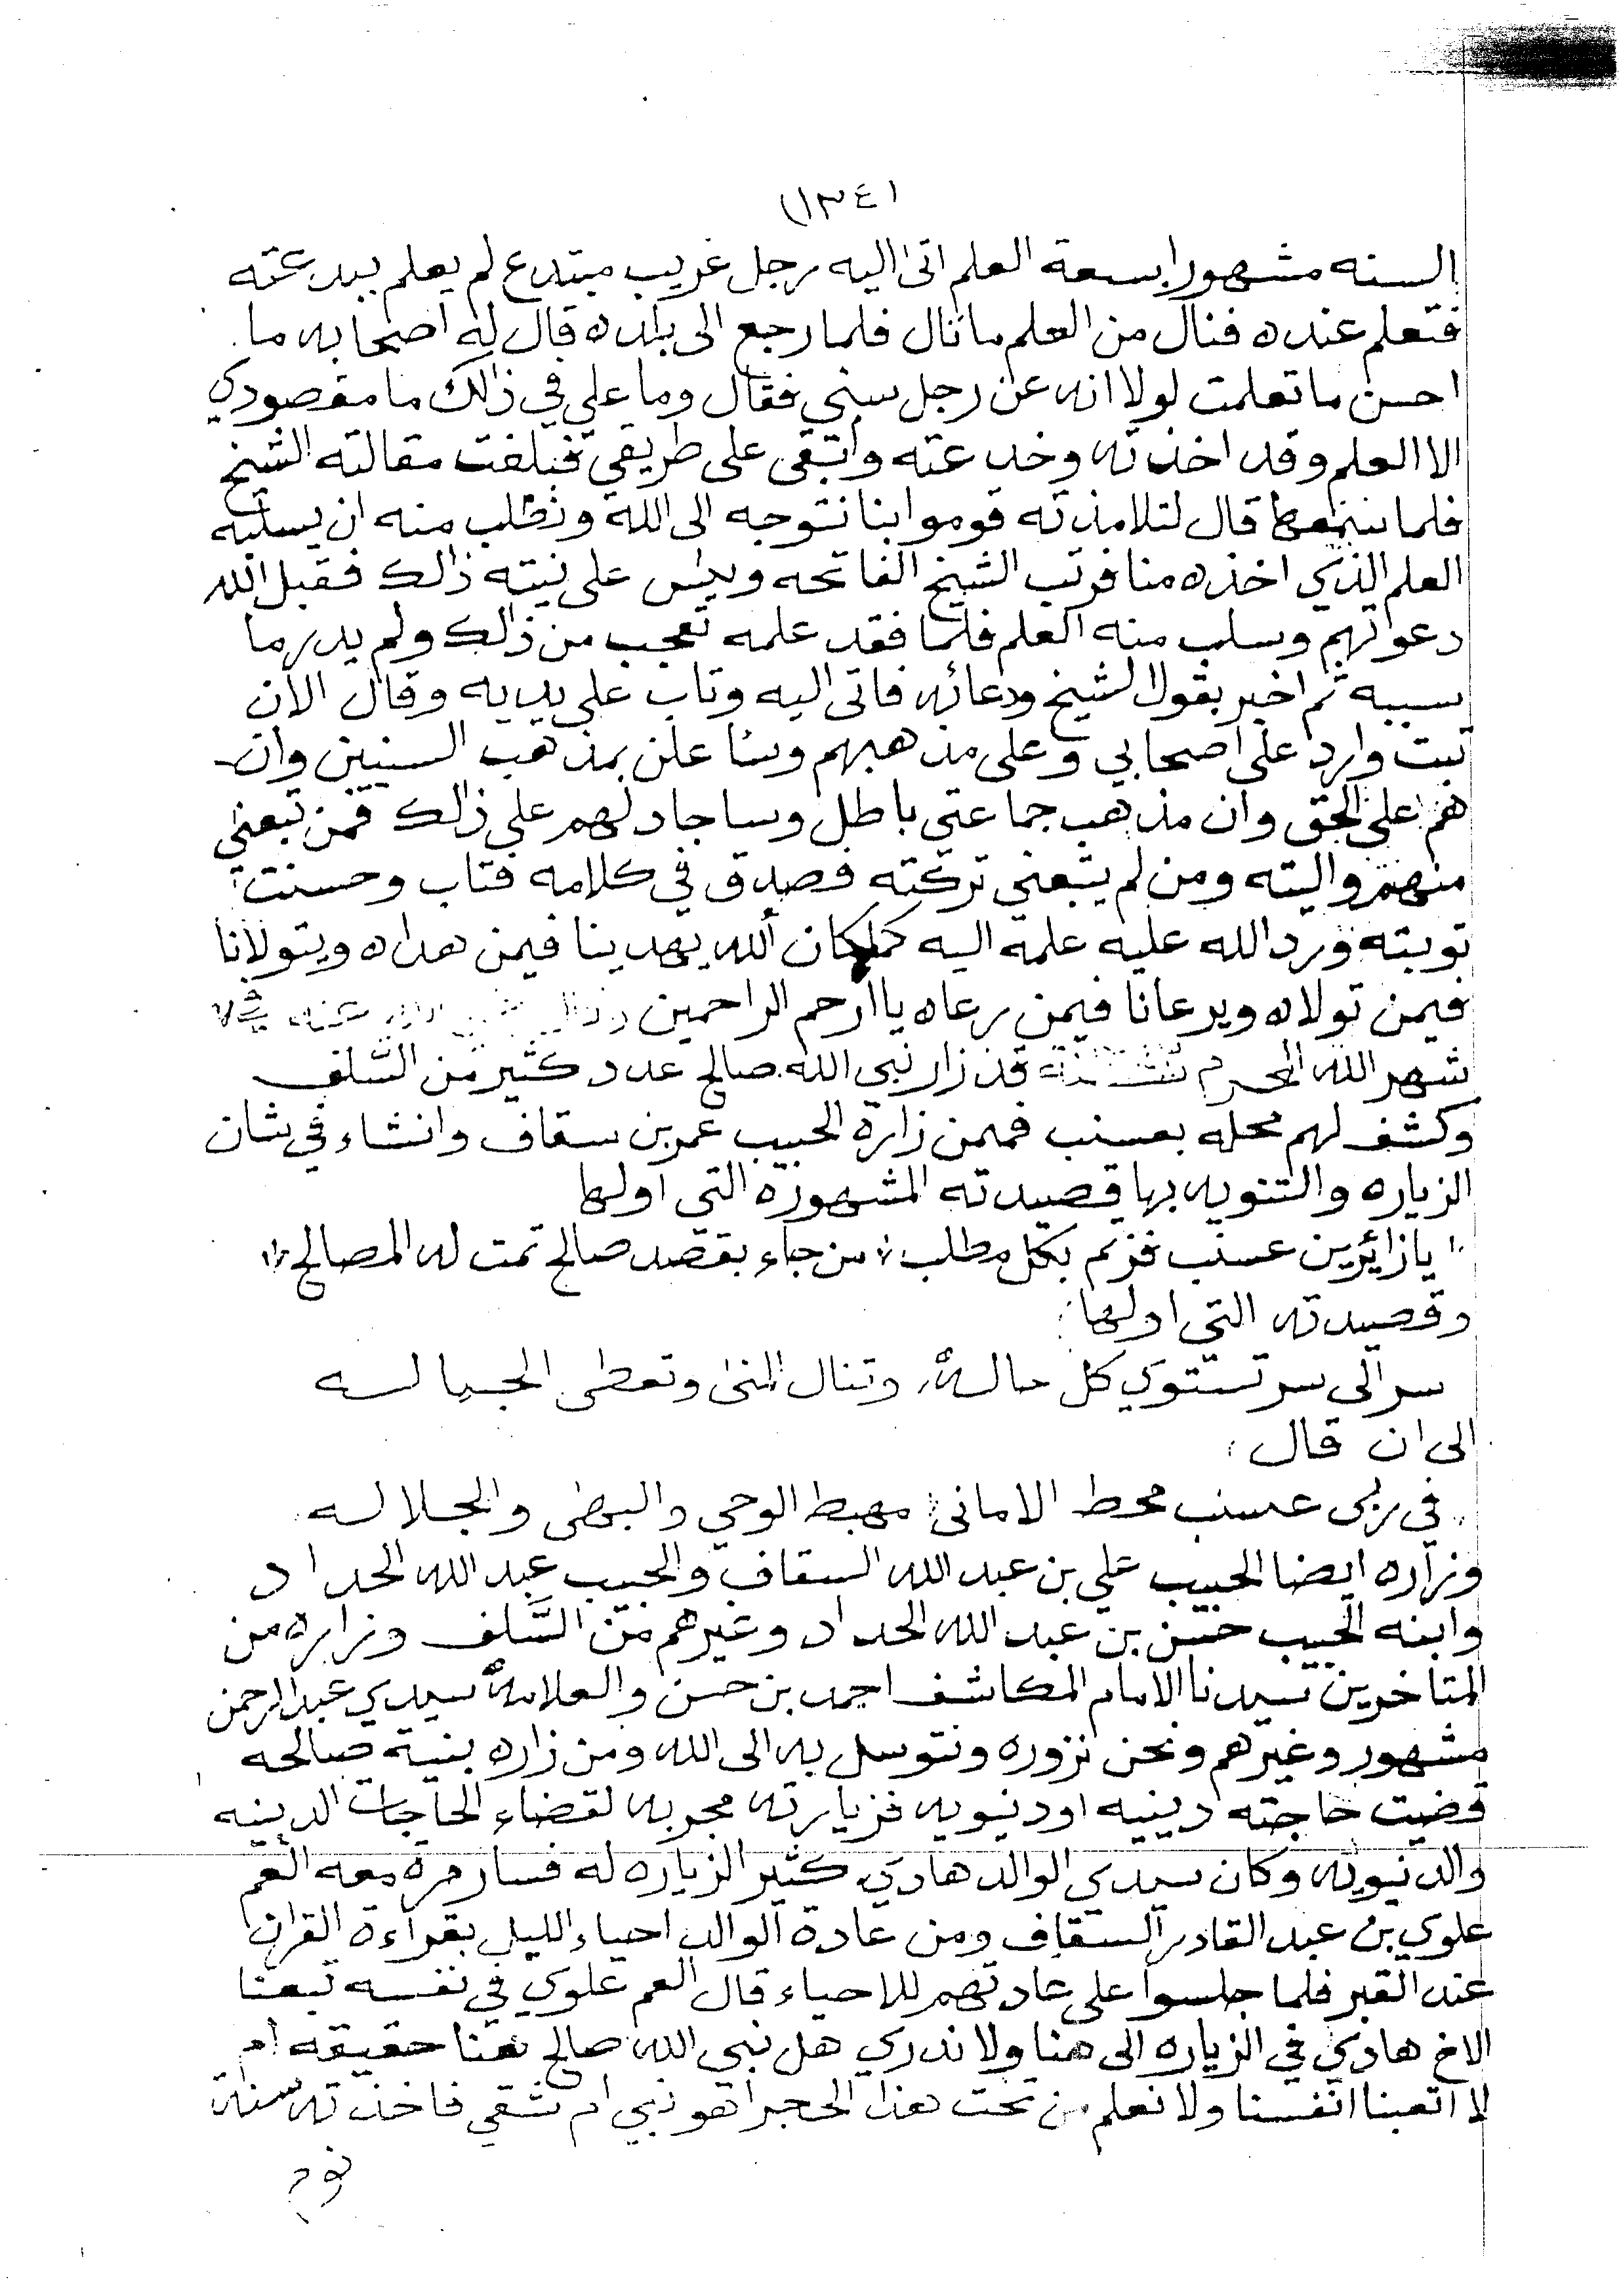 (١٣٤)
السنه مشهورا بسعة العلم اتى اليه رجل غريب مبتدع لم يعلم ببدعته
فتعلم عنده فنال من العلم ما نال فلما رجع الى بلده قال له اصحابه ما
احسن ما تعلمت لولا انه عن رجل سني فقال وما علي في ذالك ما مقصودي
الا العلم وقد اخذته وخدعته وابقى على طريقي فبلغت مقالته الشيخ
فلما سمعها قال لتلامذته قوموا بنا نتوجه الى الله ونطلب منه ان يسلبه
العلم الذي اخذه منا فرتب الشيخ الفاتحه ويس على نيته ذالك فقبل الله
دعواتهم وسلب منه العلم فلما فقد علمه تعجب من ذالك ولم يدر ما
سببه ثم اخبر بقول الشيخ ودعائه فاتى اليه وتاب على يديه وقال الان
تبت وارد على اصحابي وعلى مذهبهم وساعلن بمذهب السنيين وان
هم على الحق وان مذهب جماعتي باطل وساجادلهم على ذالك فمن تبعني
منهم واليته ومن لم يتبعني تركته فصدق في كلامه فتاب وحسنت
توبته ورد الله عليه علمه اليه كما كان الله يهدينا فيمن هداه ويتولانا
فيمن تولاه ويرعانا فيمن رعاه يا ارحم الراحمين
شهر الله المحرم قد زار نبي الله صالح عدد كثير من السلف
وكشف لهم محله بعسنب فممن زاره الحبيب عمر بن سقاف وانشاء في شان
الزياره والتنويه بها قصيدته المشهوره التي اولها
يا زائرين عسنب فزتم بكل مطلب من جاء بقصد صالح تمت له المصالح
وقصيدته التي اولها:
سر الى سر تستوي كل حاله وتنال المنى وتعطى الجباله
الى ان قال:
في ربى عسنب محط الاماني مهبط الوحي والبهى والجلاله
وزاره ايضا الحبيب علي بن عبد الله السقاف والحبيب عبد الله الحداد
وابنه الحبيب حسن بن عبد الله الحداد وغيرهم من السلف وزاره من
المتاخرين سيدنا الامام المكاشف احمد بن حسن والعلامة سيدي عبد الرحمن
مشهور وغيرهم ونحن نزوره ونتوسل به الى الله ومن زاره بنية صالحه
قضيت حاجته دينيه او دنيويه فزيارته مجربه لقضاء الحاجات الدينيه
والدنيويه وكان سيدي الوالد هادي كثير الزياره له فسار مرة معه العم
علوي بن عبد القادر السقاف ومن عادة الوالد احياء الليل بقراءة القران
عند القبر فلما جلسوا على عادتهم للاحياء قال العم علوي في نفسه تبعنا
الاخ هادي في الزياره الى هنا ولا ندري هل نبي الله صالح هنا حقيقه ام
لا اتعبنا انفسنا ولا نعلم من تحت هذا الحجر اهو نبي ام شقي فاخذته سنة
نوم